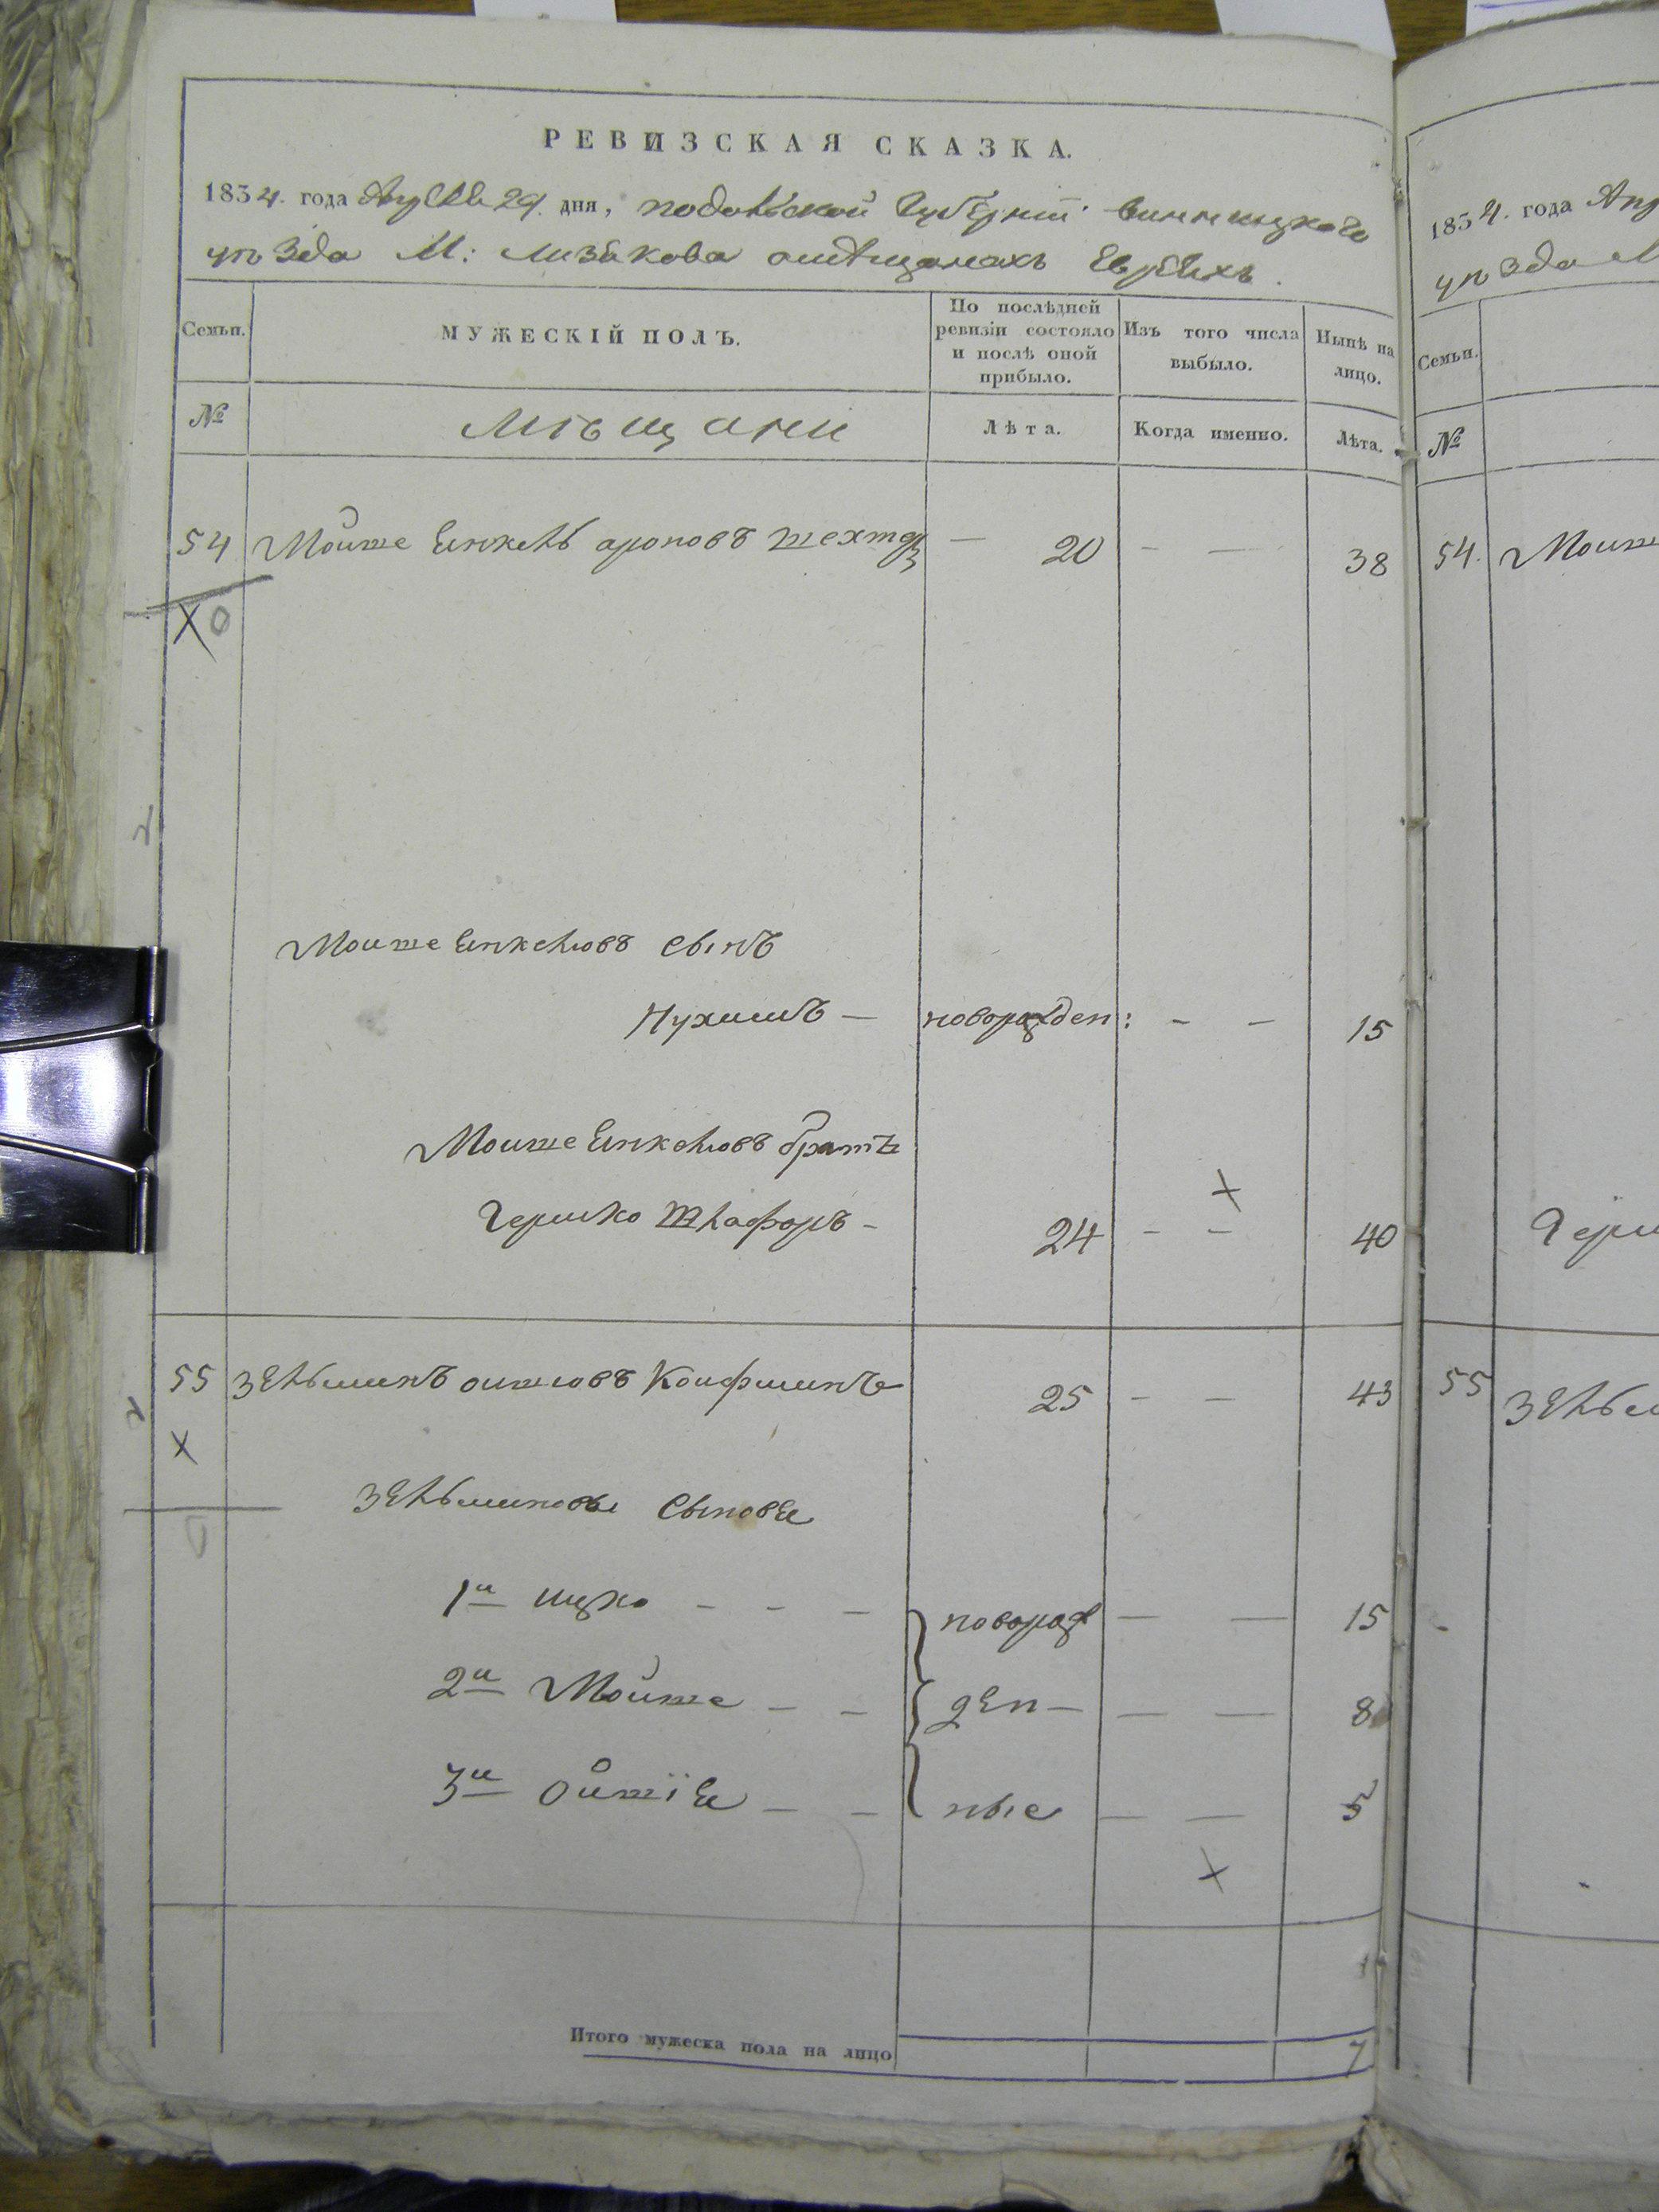 РЕВИЗСКАЯ СКАЗКА.
1834. года Апреля 29. дня, подольской Губернiи винницкаго
уѣзда М: Литвкова о мѣщанахъ Евреяхъ.
Семьи. МУЖЕСКІЙ ПОЛЪ. По послѣдней ревизіи состояло и послѣ оной прибыло. Изъ того числа выбыло. Нынѣ на лицо.
№ Мѣщане Лѣта. Когда именно. Лѣта.
54 Мойше Енкель ароновъ шехтеръ — 20 - — 38
Х 0
Мойше Енкелювъ сынъ
Нухимъ — новорожден: - - 15
Мойше Енкелювъ братъ
Гершко Шкафаръ - 24 - - 40
55 Зельманъ ошіовъ Койфманъ 25 - - 43
Х
Зельмановы сыновья
1й ицко - - - новорож — — 15
2й Мойше - - ден — — — 8
3й ошія - - ные — — 5
Итого мужеска пола на лицо 7
1834. года Апр
уѣзда М
Семьи.
№
54. Мойш
Герш
55 Зельм